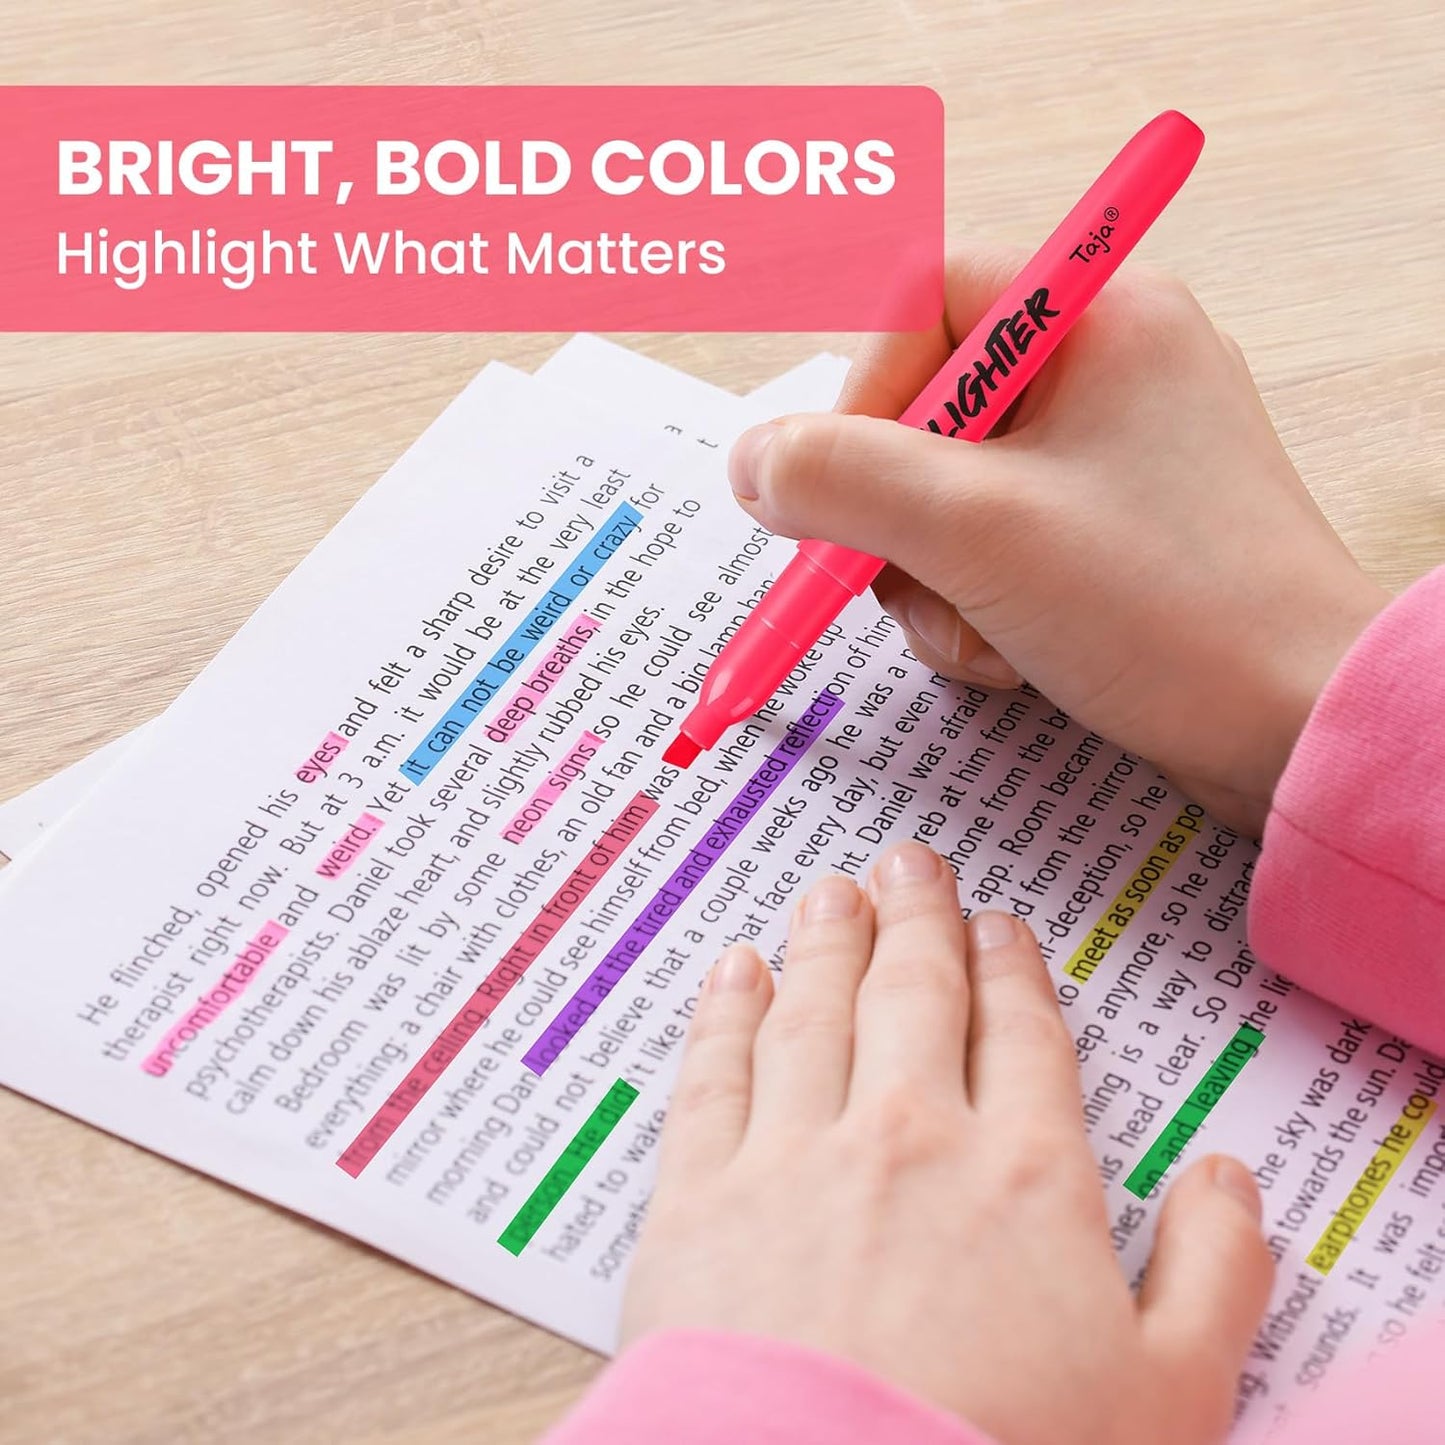 BRIGHT, BOLD COLORS
Highlight What Matters
Taja®
LIGHTER
He flinched, opened his eyes and felt a sharp desire to visit a
therapist right now. But at 3 a.m. it would be at the very least
uncomfortable and weird. Yet it can not be weird or crazy for
psychotherapists. Daniel took several deep breaths, in the hope to
calm down his ablaze heart, and slightly rubbed his eyes.
Bedroom was lit by some neon signs so he could see almost
everything: a chair with clothes, an old fan and a big lamp
from the ceiling. Right in front of him was
mirror where he could see himself from bed, when he woke up
morning Dan looked at the tired and exhausted reflection of him
and could not believe that a couple weeks ago he was a
person. He didn't like to that face every day, but even
hated to wake ht. Daniel was afraid
reb at him from
phone from the
app. Room became
d from the mirror
r-deception, so he
to meet as soon as po
eep anymore, so he deci
ning is a way to distract
his head clear. So Dan
on and leaving the
the sky was dark
n towards the sun.
Without earphones he could
sounds. It was
so he felt